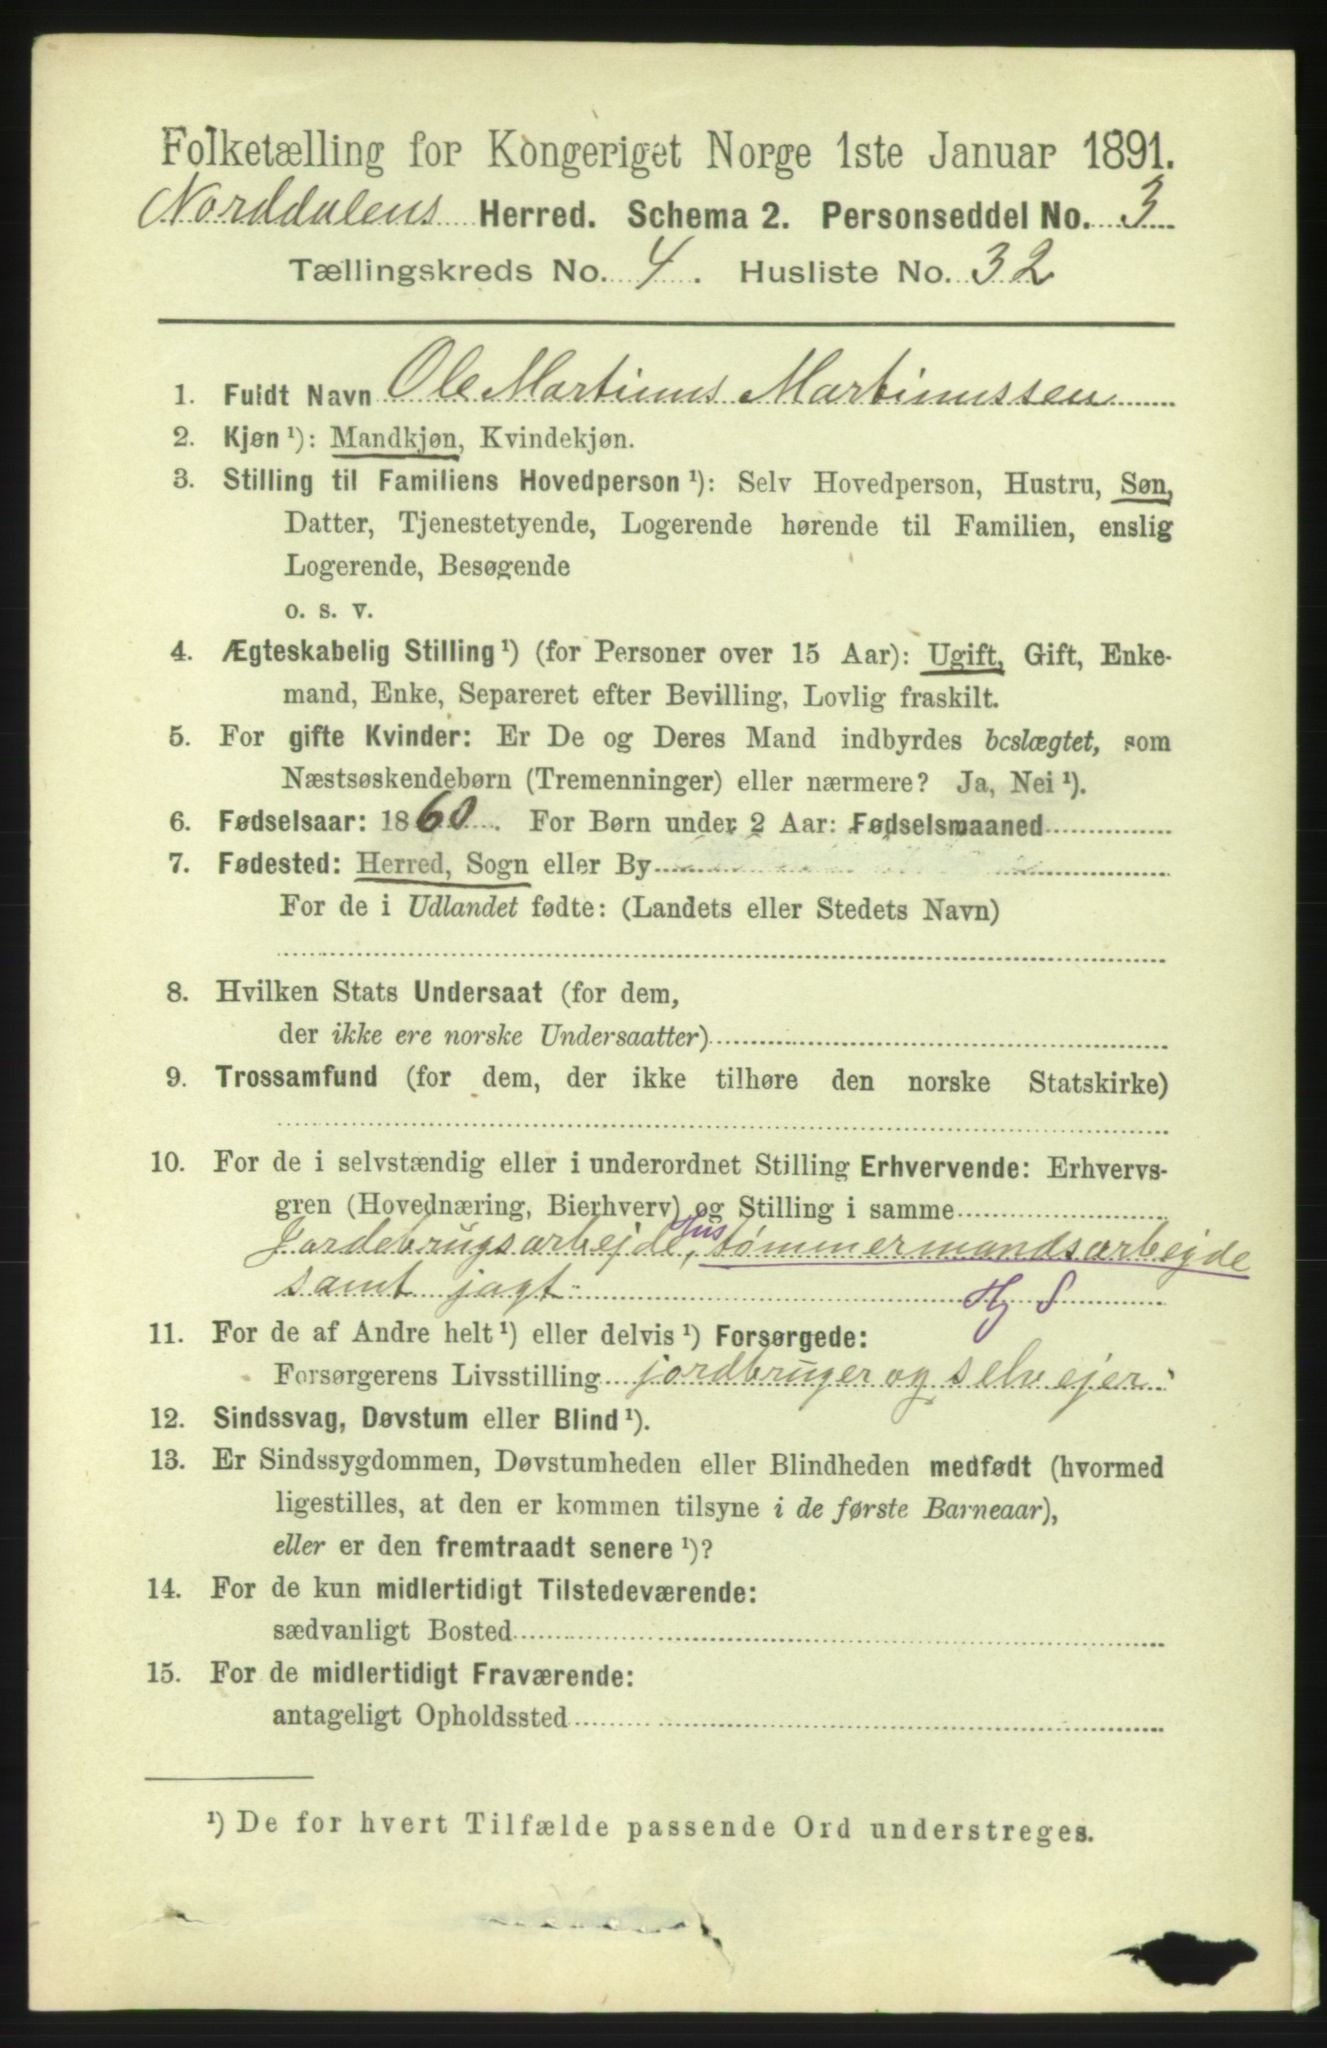 Folketælling for Kongeriget Norge 1ste Januar 1891.
Norddalens Herred. Schema 2. Personseddel No. 3
Tællingskreds No. 4. Husliste No. 32
1. Fuldt Navn Ole Martinus Martinussen
2. Kjøn ¹): Mandkjøn, Kvindekjøn.
3. Stilling til Familiens Hovedperson ¹): Selv Hovedperson, Hustru, Søn,
Datter, Tjenestetyende, Logerende hørende til Familien, enslig
Logerende, Besøgende
o. s. v.
4. Ægteskabelig Stilling ¹) (for Personer over 15 Aar): Ugift, Gift, Enke-
mand, Enke, Separeret efter Bevilling, Lovlig fraskilt.
5. For gifte Kvinder: Er De og Deres Mand indbyrdes beslægtet, som
Næstsøskendebørn (Tremenninger) eller nærmere? Ja, Nei ¹).
6. Fødselsaar: 1860. For Børn under 2 Aar: Fødselsmaaned
7. Fødested: Herred, Sogn eller By
For de i Udlandet fødte: (Landets eller Stedets Navn)
8. Hvilken Stats Undersaat (for dem,
der ikke ere norske Undersaatter)
9. Trossamfund (for dem, der ikke tilhøre den norske Statskirke)
10. For de i selvstændig eller i underordnet Stilling Erhvervende: Erhvervs-
gren (Hovednæring, Bierhverv) og Stilling i samme
Jordebrugsarbejde, Hus tømmermandsarbejde
samt jagt Hj S
11. For de af Andre helt ¹) eller delvis ¹) Forsørgede:
Forsørgerens Livsstilling jordbruger og selvejer
12. Sindssvag, Døvstum eller Blind ¹).
13. Er Sindssygdommen, Døvstumheden eller Blindheden medfødt (hvormed
ligestilles, at den er kommen tilsyne i de første Barneaar),
eller er den fremtraadt senere ¹)?
14. For de kun midlertidigt Tilstedeværende:
sædvanligt Bosted
15. For de midlertidigt Fraværende:
antageligt Opholdssted
¹) De for hvert Tilfælde passende Ord understreges.